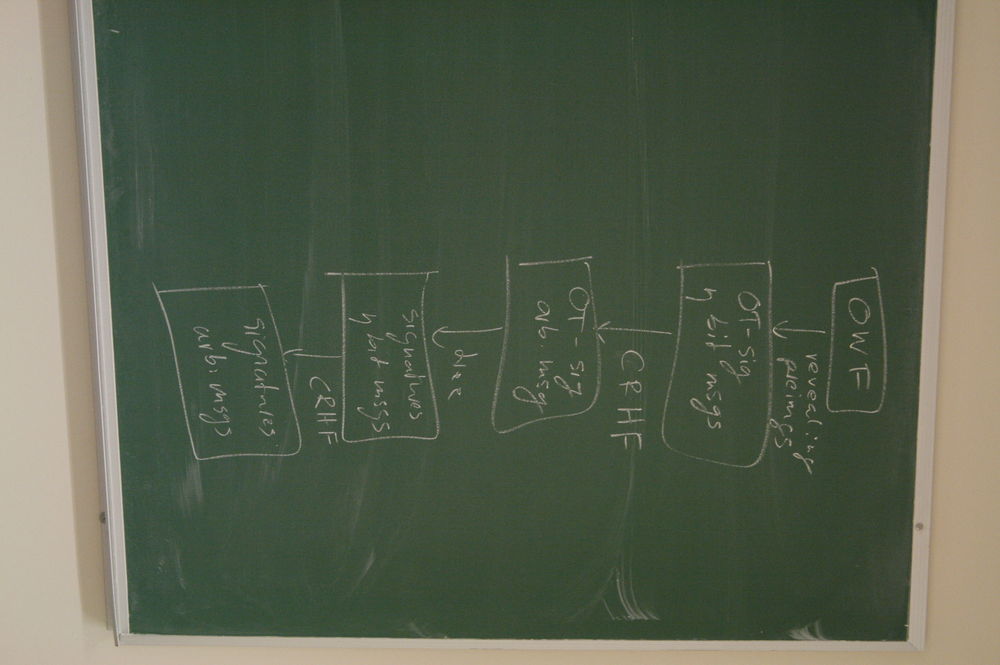 OWF
revealing
preimgs
OT-sig
η bit msgs
CRHF
OT-sig
arb. msg
tree
signatures
η bit msgs
CRHF
signatures
arb. msgs